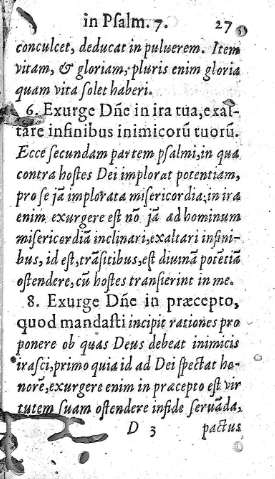 in Psalm. 7. 27
conculcet, deducat in puluerem. Item
vitam, & gloriam, pluris enim gloria
quam vita solet haberi.
6. Exurge Dñe in ira tua, exal-
tare infinibus inimicorũ tuorũ.
Ecce secundam partem psalmi, in qua
contra hostes Dei implorat potentiam,
pro se jã implorata misericordia; in ira
enim exurgere est nõ jã ad hominum
misericordiã inclinari, exaltari infini-
bus, id est, trãsitibus, est diuinã potẽtiã
ostendere, cũ hostes transierint in me.
8. Exurge Dñe in præcepto,
quod mandasti incipit rationes pro
ponere ob quas Deus debeat inimicis
irasci, primo quia id ad Dei spectat ho-
norẽ, exurgere enim in præcepto est vir
tutem suam ostendere in fide seruãda,
D 3 pactus